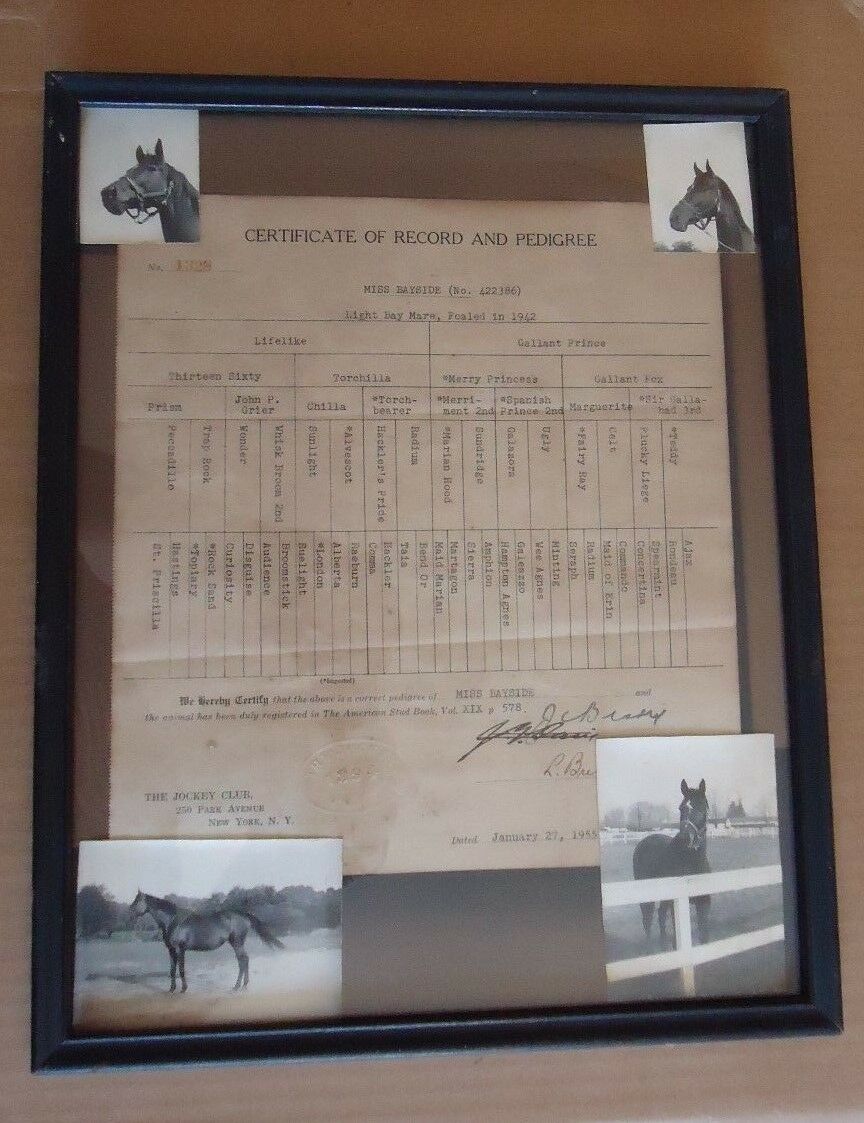 CERTIFICATE OF RECORD AND PEDIGREE
No. 1328
MISS BAYSIDE (No. 422386)
Light Bay Mare, Foaled in 1942
Lifelike Gallant Prince
Thirteen Sixty Torchilla *Merry Princess Gallant Fox
Prism John P. Grier Chilla *Torch-bearer *Merri-ment 2nd *Spanish Prince 2nd Marguerite *Sir Galla-had 3rd
Peccadille
Trap Rock
Wonder
Whisk Broom 2nd
Sunlight
*Alvescot
Hackler's Pride
Radium
*Marian Hood
Sundridge
Galazora
Ugly
*Fairy Ray
Celt
Plucky Liege
*Teddy
St. Priscilla
Hastings
*Topiary
*Rock Sand
Curiosity
Disguise
Audience
Broomstick
Ruelight
*London
Alberta
Raeburn
Comma
Hackler
Taia
Bend Or
Maid Marian
Martagon
Sierra
Amphion
Hampton Agnes
Galeazzo
Wee Agnes
Minting
Seraph
Radium
Maid of Erin
Commando
Concertina
Spearmint
Rondeau
Ajax
(*Imported)
We Hereby Certify that the above is a correct pedigree of MISS BAYSIDE and
the animal has been duly registered in The American Stud Book, Vol. XIX p 578.
THE JOCKEY CLUB,
250 PARK AVENUE
NEW YORK, N. Y.
Dated January 27, 1955